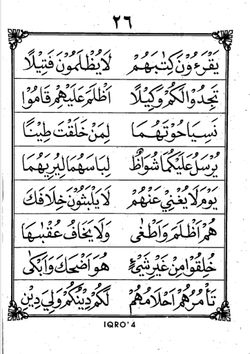 ٢٦
يَقْرَءُونَ كِتٰبَهُمْ لَا يُظْلَمُونَ فَتِيْلًا
تَجِدُوا لَكُمْ وَكِيْلًا اَظْلَمَ عَلَيْهِمْ قَامُوْا
نَسِيَا حُوْتَهُمَا لِمَنْ خَلَقْتَ طِيْنًا
يُرْسَلُ عَلَيْكُمَا شُوَاظٌ لِبَاسَهُمَا لِيُرِيَهُمَا
يَوْمَ لَا يُغْنِيْ عَنْهُمْ لَا يَلْبَثُوْنَ خِلَافَكَ
هُمْ اَظْلَمَ وَاَطْغٰى وَلَا يَخَافُ عُقْبٰهَا
خُلِقُوْا مِنْ غَيْرِ شَيْءٍ هُوَ اَضْحَكَ وَاَبْكٰى
تَأْمُرُهُمْ اَحْلَامُهُمْ لَكُمْ دِيْنُكُمْ وَلِيَ دِيْنِ
IQRO' 4